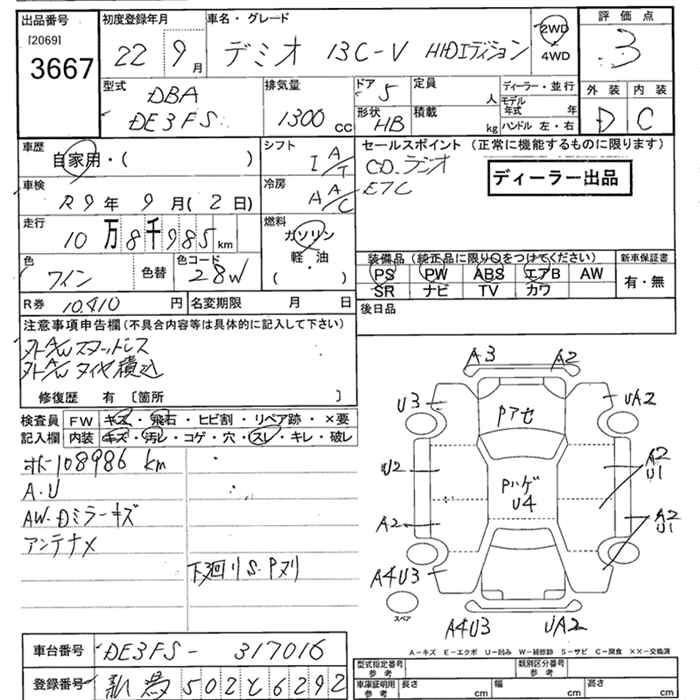 出品番号 初度登録年月 車名・グレード 評価点
[2069]
3667 22年 9月 デミオ 13C-V HIDエディション 2WD 4WD 3
型式 DBA 排気量 ドア 5 定員 人 ディーラー・並行 外装 内装
DE3FS 1300 cc 形状 HB 積載 kg モデル年式 年 D C
ハンドル 左・右
車歴 自家用・( ) シフト I A/T セールスポイント (正常に機能するものに限ります)
CD.ラジオ
ETC
ディーラー出品
車検 R9年 9月(2日) 冷房 A A/C
走行 10万8千985km 燃料 ガソリン・軽油・( )
色 ワイン 色替 色コード 28W
装備品 (純正品に限り○をつけてください) 新車保証書
PS PW ABS エアB AW 有・無
SR ナビ TV カワ
R券 10,410 円 名変期限 月 日 後日品
注意事項申告欄 (不具合内容等は具体的に記入して下さい)
外AWスタットレス
外AWタイヤ積込
修復歴 有 〔箇所 〕
検査員 FW キズ・飛石・ヒビ割・リペア跡・×要
記入欄 内装 キズ・汚レ・コゲ・穴・スレ・キレ・破レ
108986 km
A・U
AW・Dミラーキズ
アンテナメ
下廻りS・Pヌリ
A3 A2
U3 Pアセ UA2
U2 Pハゲ U4 A2 U1
A2 A2 U1
A4U3
スペア
A4U3 UA2
A-キズ E-エクボ U-凹み W-補修跡 S-サビ C-腐食 ××-交換済
車台番号 DE3FS- 317016 型式指定番号 参考 類別区分番号 参考
登録番号 502 と 6292 車庫証明用 参考 長さ cm 幅 cm 高さ cm